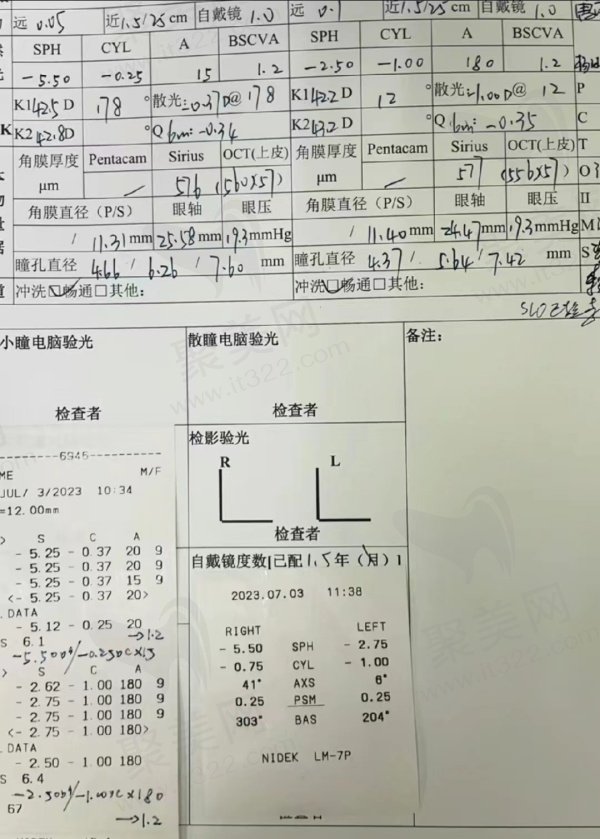 远 0.05 近1.5/25cm 自戴镜 1.0 远 0.1 近1.5/25cm 自戴镜 1.0
SPH CYL A BSCVA SPH CYL A BSCVA
-5.50 -0.25 15 1.2 -2.50 -1.00 180 1.2
K1 42.5 D 178 ° 散光:-0.37D@ 178 K1 42.2 D 12 ° 散光:-1.00D@ 12 P
K K2 42.8D Q 6mm: -0.34 K2 43.2 D Q 6mm: -0.35 C
角膜厚度 Pentacam Sirius OCT(上皮) 角膜厚度 Pentacam Sirius OCT(上皮) T
μm / 576 (560X57) μm / 577 (556X57) O
角膜直径（P/S） 眼轴 眼压 角膜直径（P/S） 眼轴 眼压 II
/ 11.31 mm 25.58 mm 19.3mmHg / 11.40 mm 24.47 mm 19.3mmHg M
瞳孔直径 4.66 / 6.26 / 7.60 mm 瞳孔直径 4.37 / 5.64 / 7.42 mm S
冲洗☑畅通□其他: 冲洗☑畅通□其他:
小瞳电脑验光 散瞳电脑验光 备注:
聚美网
www.it322.com
检查者 检查者
检影验光
R L
检查者
6946
ME M/F
JUL/ 3/2023 10:34
=12.00mm
> S C A
- 5.25 - 0.37 20 9
- 5.25 - 0.37 20 9
- 5.25 - 0.37 15 9
<- 5.25 - 0.37 20>
.DATA
- 5.12 - 0.25 20
S 6.1 →1.2
-5.50DS/-0.25DCX15
> S C A
- 2.62 - 1.00 180 9
- 2.75 - 1.00 180 9
- 2.75 - 1.00 180 9
<- 2.75 - 1.00 180>
.DATA
- 2.50 - 1.00 180
S 6.4
-2.50DS/-1.00DCX180
67 →1.2
自戴镜度数[已配1.5年（月）]
2023.07.03 11:38
RIGHT LEFT
- 5.50 SPH - 2.75
- 0.75 CYL - 1.00
41° AXS 6°
0.25 PSM 0.25
303° BAS 204°
NIDEK LM-7P
聚美网
www.it322.com